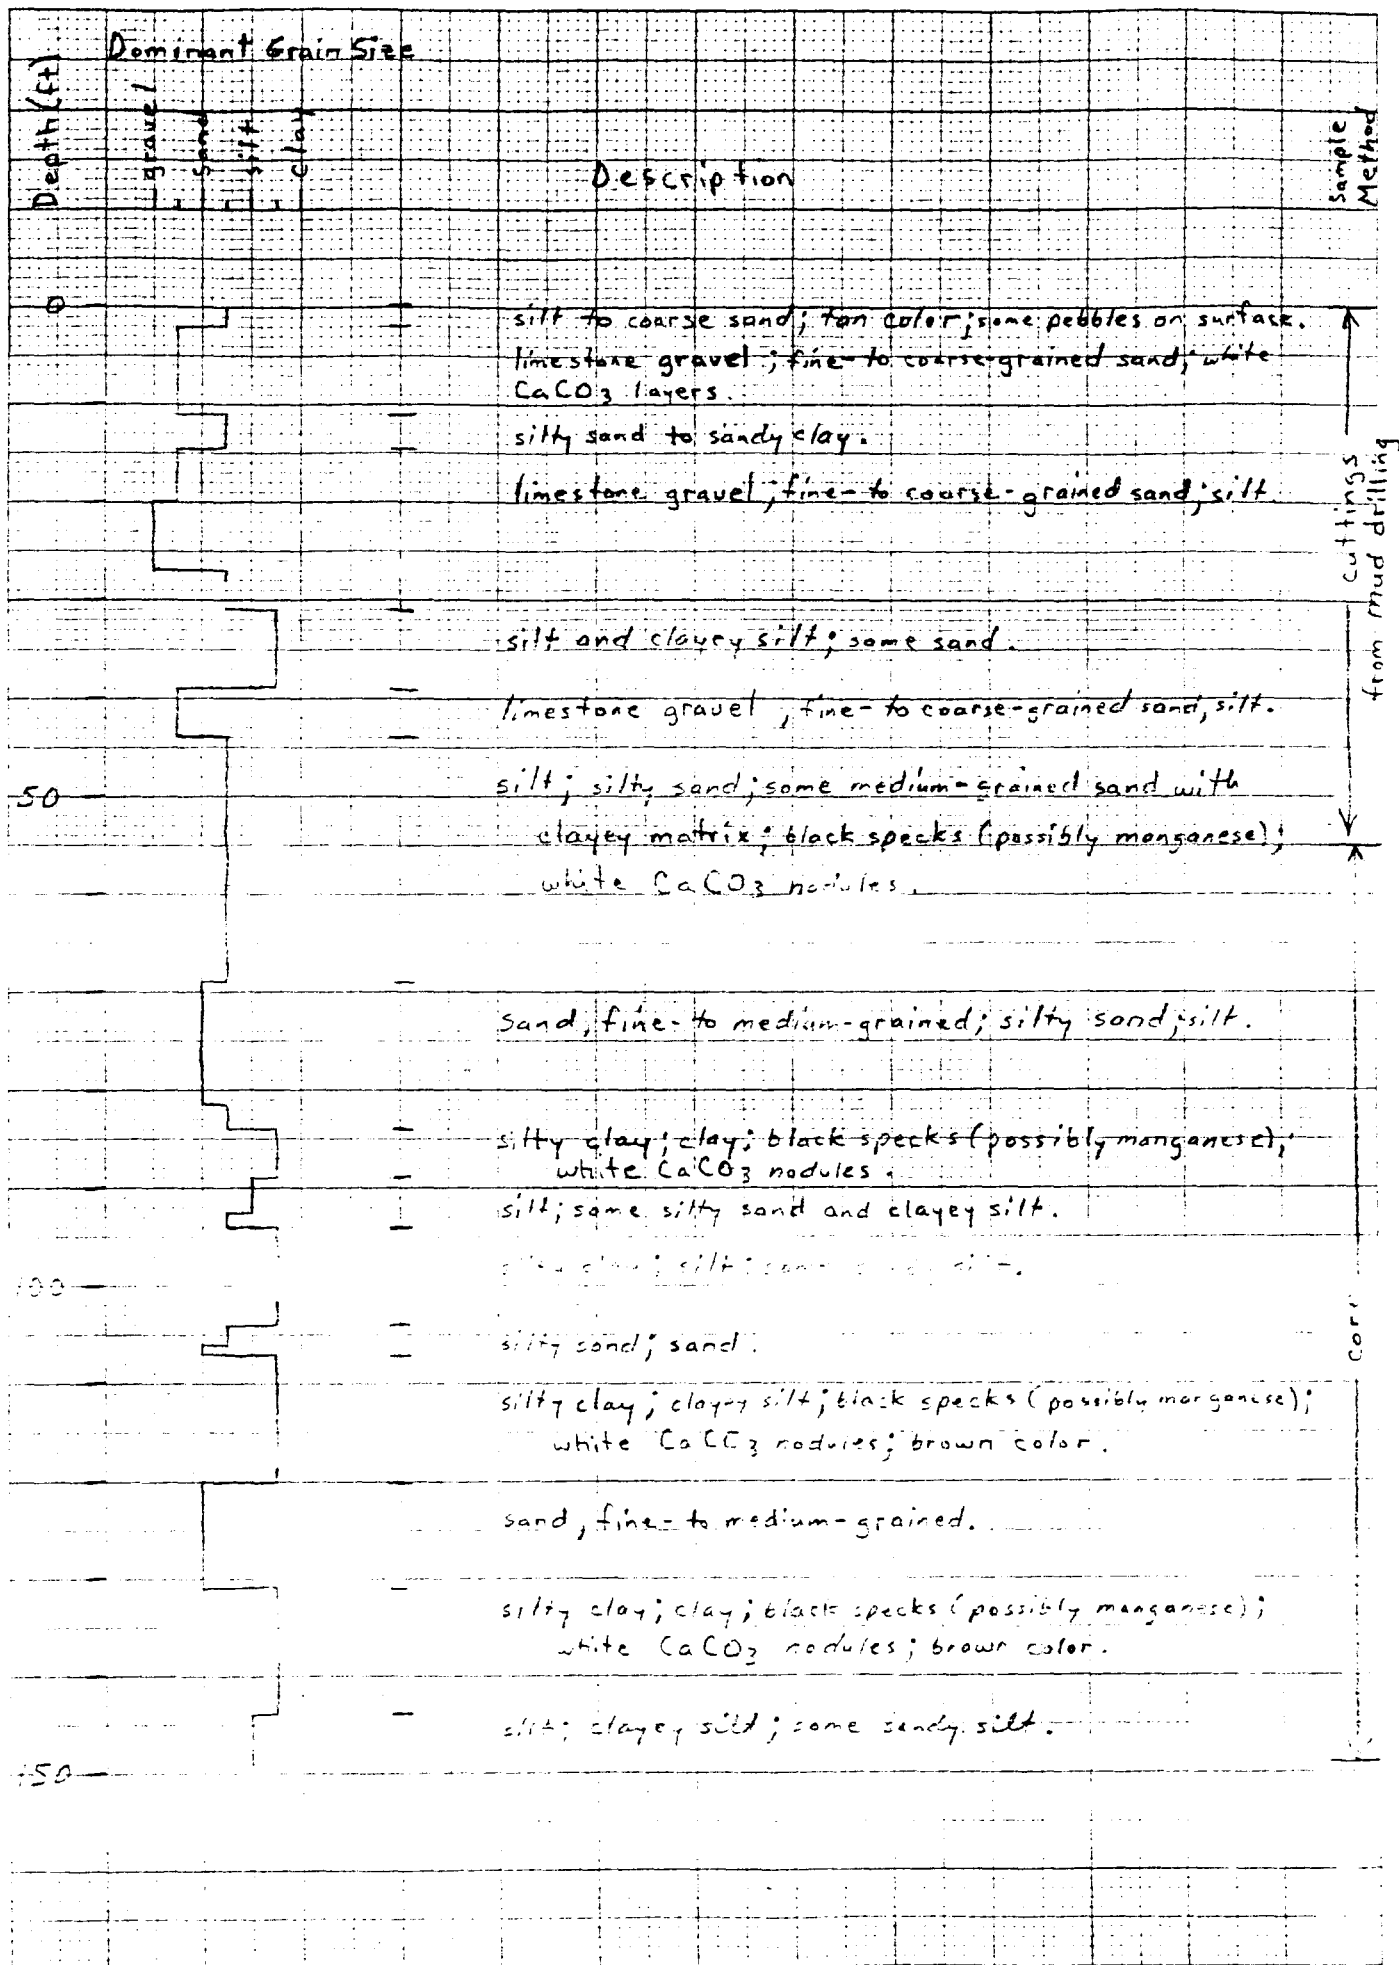 Dominant Grain Size
Depth (ft)
gravel
sand
silt
clay
Description
Sample
Method
0
silt to coarse sand; tan color; some pebbles on surface.
limestone gravel; fine- to coarse-grained sand; white
CaCO3 layers.
silty sand to sandy clay.
limestone gravel; fine- to coarse-grained sand; silt
cuttings
from mud drilling
silt and clayey silt; some sand.
limestone gravel, fine- to coarse-grained sand, silt.
50
silt; silty sand; some medium-grained sand with
clayey matrix; black specks (possibly manganese);
white CaCO3 nodules.
sand, fine- to medium-grained; silty sand; silt.
silty clay; clay; black specks (possibly manganese);
white CaCO3 nodules.
silt; some silty sand and clayey silt.
silt;
100
silty sand; sand.
core
silty clay; clayey silt; black specks (possibly manganese);
white CaCO3 nodules; brown color.
sand, fine- to medium-grained.
silty clay; clay; black specks (possibly manganese);
white CaCO3 nodules; brown color.
silt; clayey silt; some sandy silt.
150